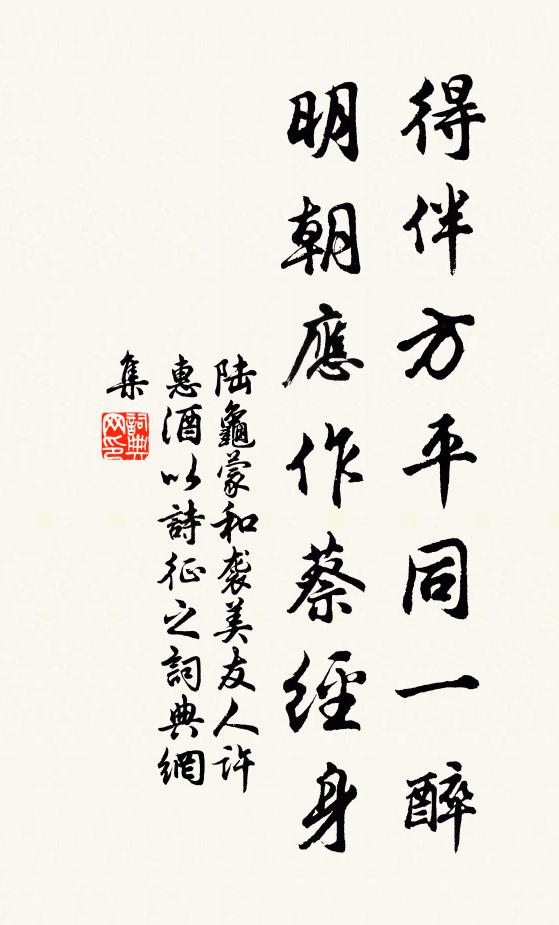 得伴方平同一醉
明朝應作蔡經身
陆龜蒙和袭美友人许
惠酒以詩征之詞典網
集
詞典
网印